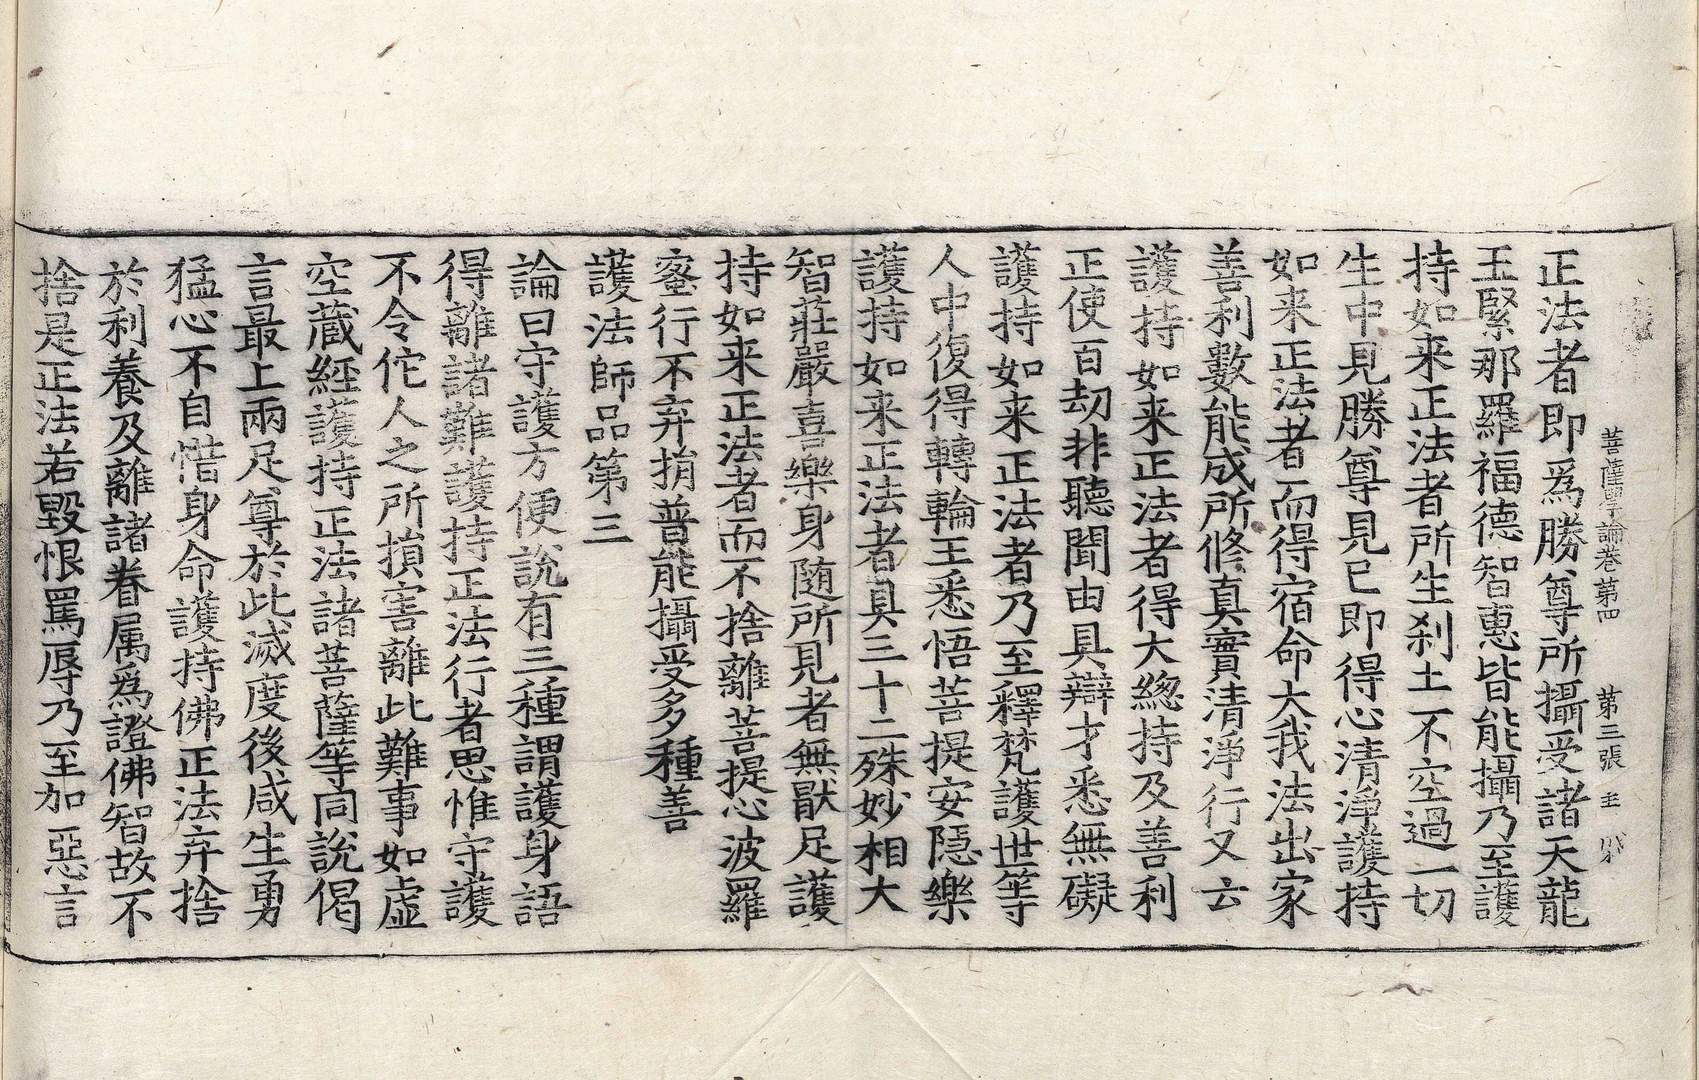 菩薩學論卷第四 第三張 主
正法者即爲勝尊所攝受諸天龍
王緊那羅福德智惠皆能攝乃至護
持如来正法者所生刹土不空過一切
生中見勝尊見已即得心清淨護持
如来正法者而得宿命大我法出家
善利數能成所修真實清淨行又云
護持如来正法者得大緫持及善利
正使百劫非聽聞由具辯才悉無礙
護持如来正法者乃至釋梵護世等
人中復得轉輪王悉悟菩提安隱樂
護持如来正法者具三十二殊妙相大
智莊嚴喜樂身随所見者無猒足護
持如来正法者而不捨離菩提心波羅
蜜行不弃捐普能攝受多種善
護法師品第三
論曰守護方便說有三種謂護身語
得離諸難護持正法行者思惟守護
不令佗人之所損害離此難事如虛
空藏經護持正法諸菩薩等同說偈
言最上兩足尊於此滅度後咸生勇
猛心不自惜身命護持佛正法弃捨
於利養及離諸眷属爲證佛智故不
捨是正法若毀恨罵辱乃至加惡言